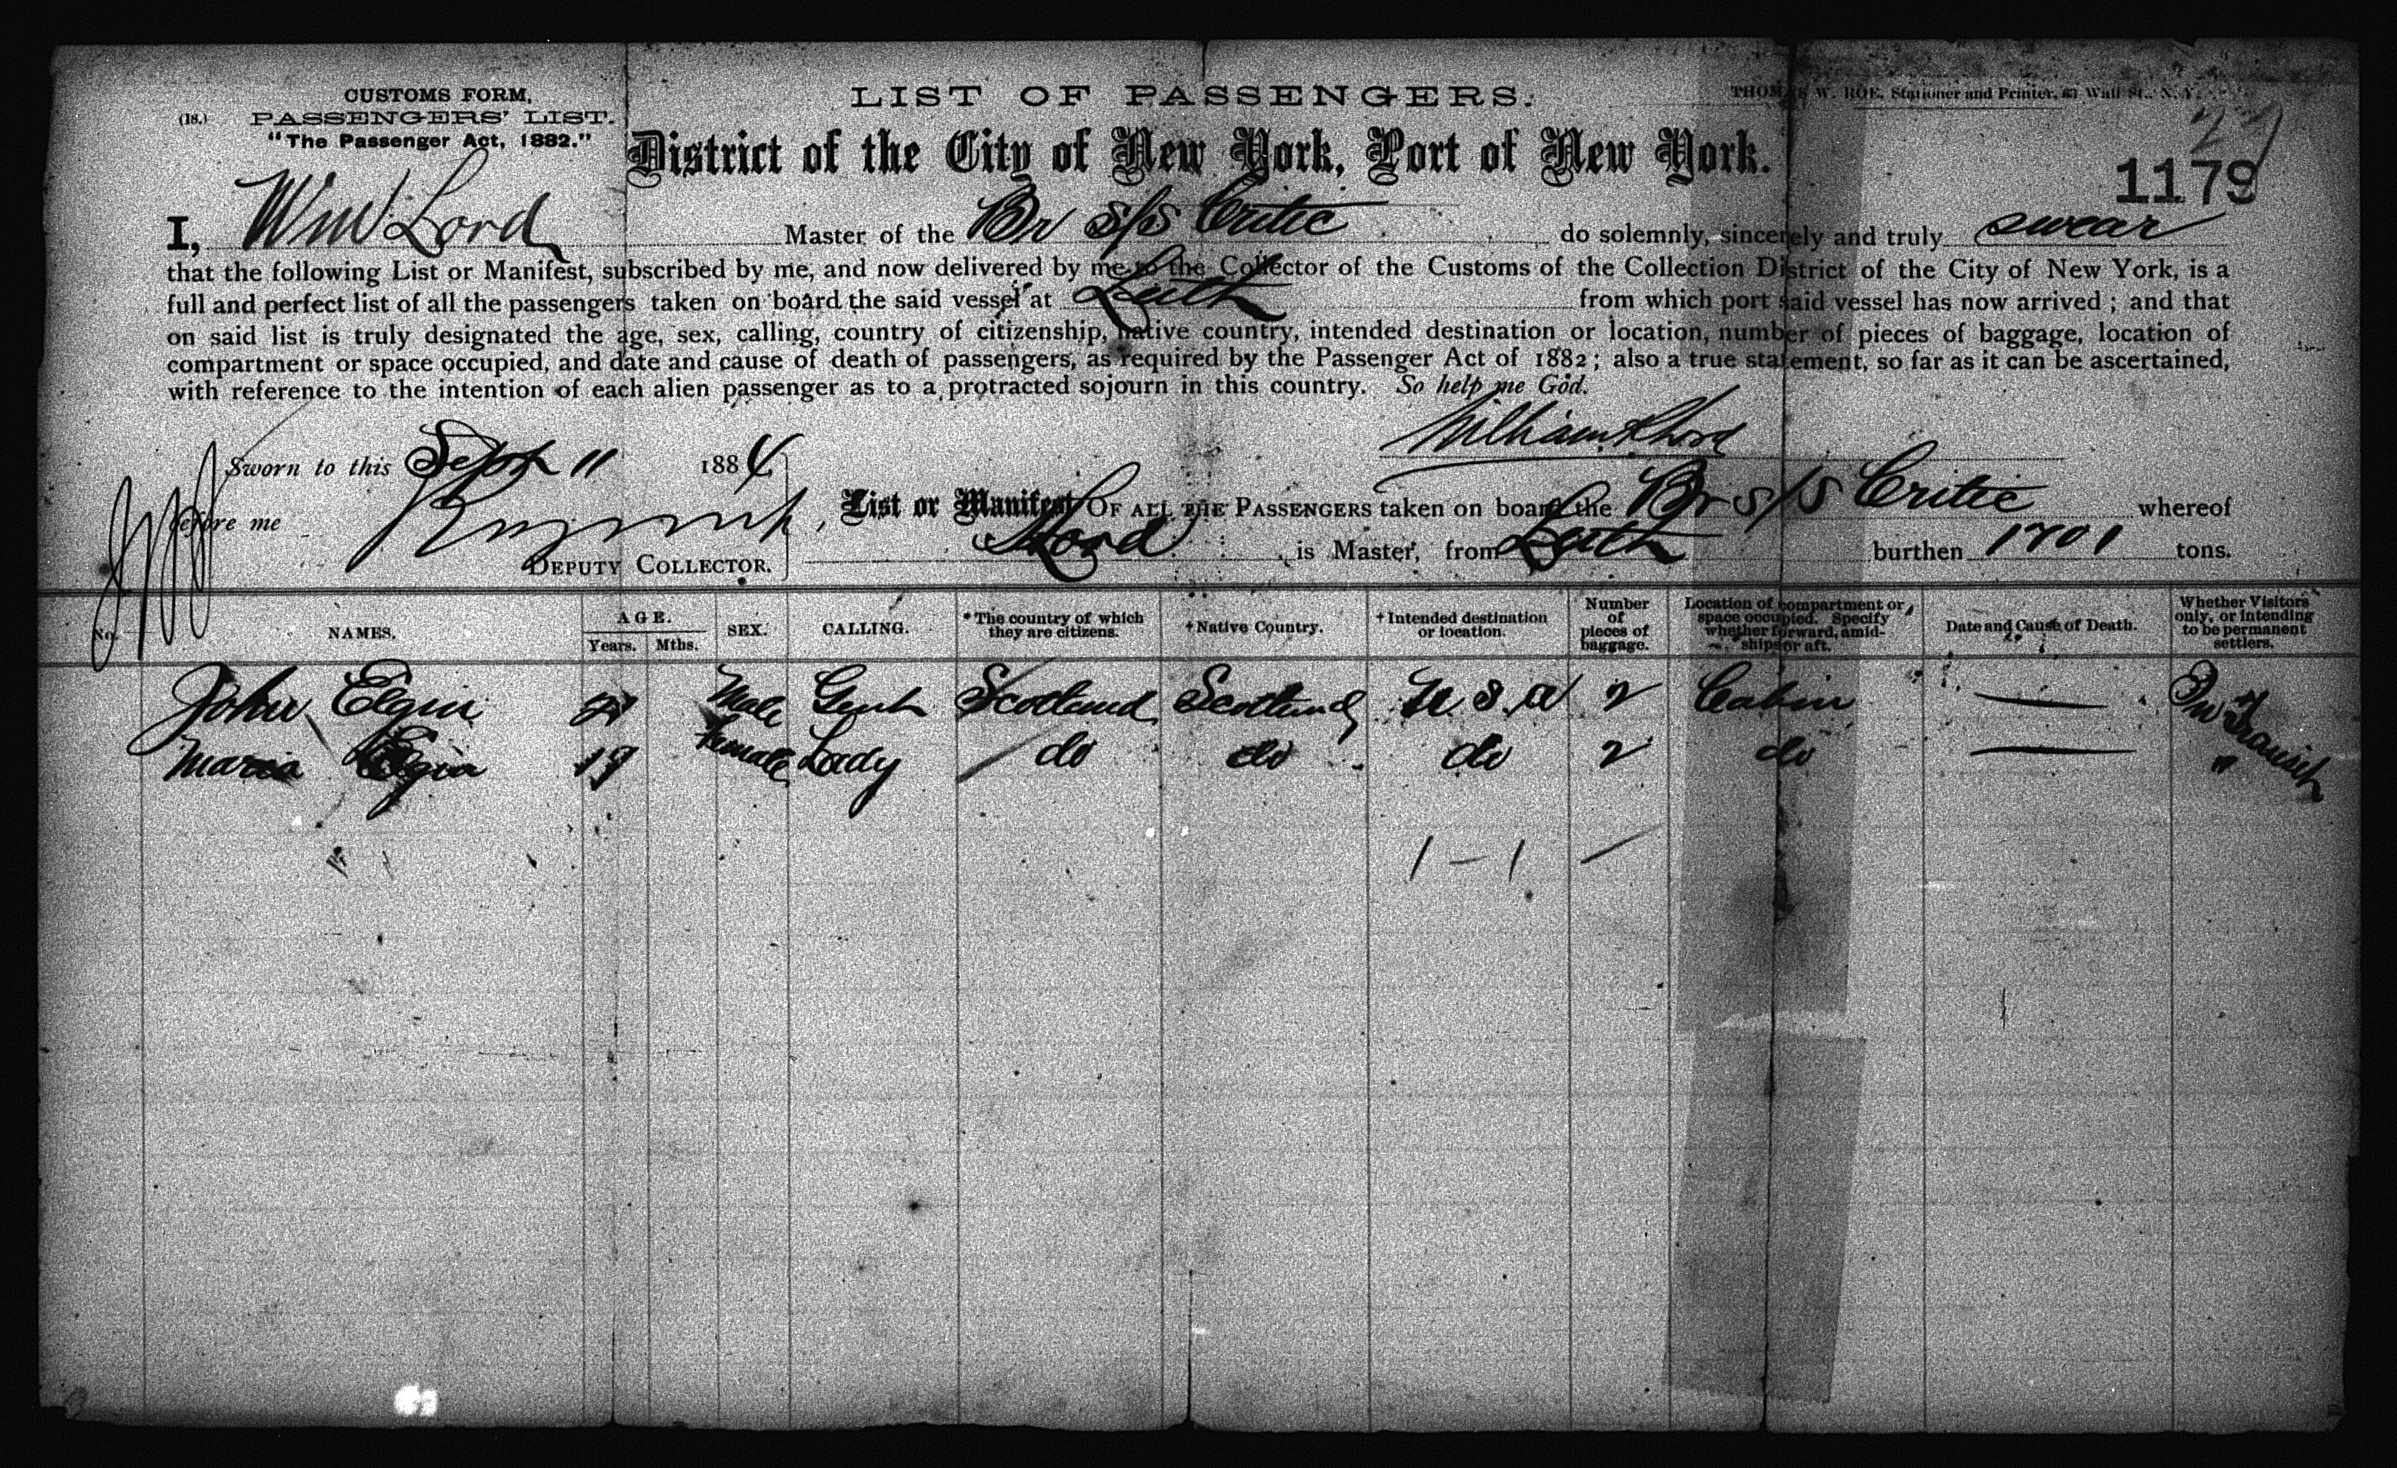 CUSTOMS FORM,
(18.) PASSENGERS' LIST.
"The Passenger Act, 1882."
LIST OF PASSENGERS.
THOMAS W. ROE, Stationer and Printer, 63 Wall St., N. Y.
27
District of the City of New York, Port of New York.
1179
I, Wm Lord Master of the Br s/s Critic do solemnly, sincerely and truly swear
that the following List or Manifest, subscribed by me, and now delivered by me to the Collector of the Customs of the Collection District of the City of New York, is a
full and perfect list of all the passengers taken on board the said vessel at Leith from which port said vessel has now arrived; and that
on said list is truly designated the age, sex, calling, country of citizenship, native country, intended destination or location, number of pieces of baggage, location of
compartment or space occupied, and date and cause of death of passengers, as required by the Passenger Act of 1882; also a true statement, so far as it can be ascertained,
with reference to the intention of each alien passenger as to a protracted sojourn in this country. So help me God.
Sworn to this Sept 11 1884
before me
DEPUTY COLLECTOR.
List or Manifest OF ALL THE PASSENGERS taken on board the Br s/s Critic whereof
Lord is Master, from Leith burthen 1701 tons.
No. NAMES. AGE. Years. Mths. SEX. CALLING. *The country of which they are citizens. †Native Country. †Intended destination or location. Number of pieces of baggage. Location of compartment or space occupied. Specify whether forward, amidships or aft. Date and Cause of Death. Whether Visitors only, or intending to be permanent settlers.
John Elgin Male Gent Scotland Scotland U.S.A 2 Cabin — In Transit
Maria Elgin 19 Female Lady do do do 2 do — "
1 – 1